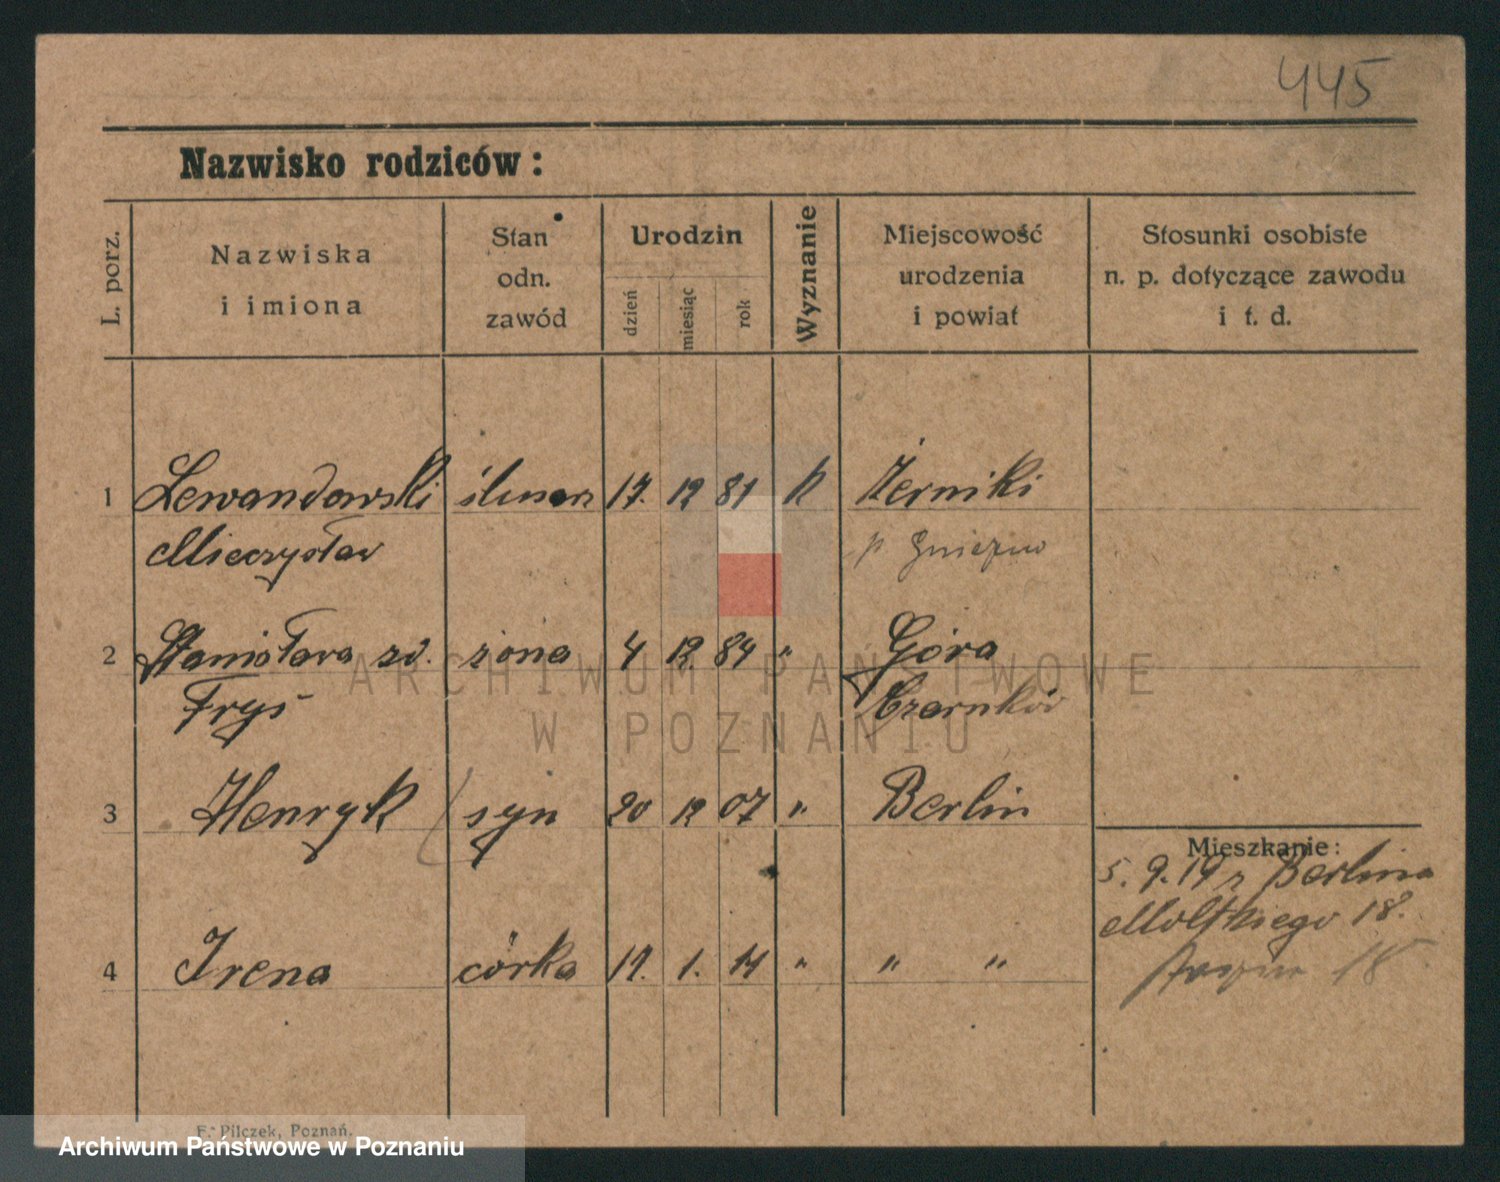 445
Nazwisko rodziców:
L. porz.
Nazwiska
i imiona
Stan
odn.
zawód
Urodzin
dzień
miesiąc
rok
Wyznanie
Miejscowość
urodzenia
i powiat
Stosunki osobiste
n. p. dotyczące zawodu
i t. d.
1 Lewandowski ślusarz 17. 12 81 k Żerniki
Mieczysław p Gniezno
2 Stanisława zd. żona 4 12. 84 " Góra
Fryś Czarnków
3 Henryk syn 20 12 07 " Berlin
Mieszkanie:
5. 9. 19 z Berlina
Moltkiego 18.
4 Irena córka 17. 1. 14 " " "
18
ARCHIWUM PAŃSTWOWE
W POZNANIU
F. Pilczek, Poznań.
Archiwum Państwowe w Poznaniu